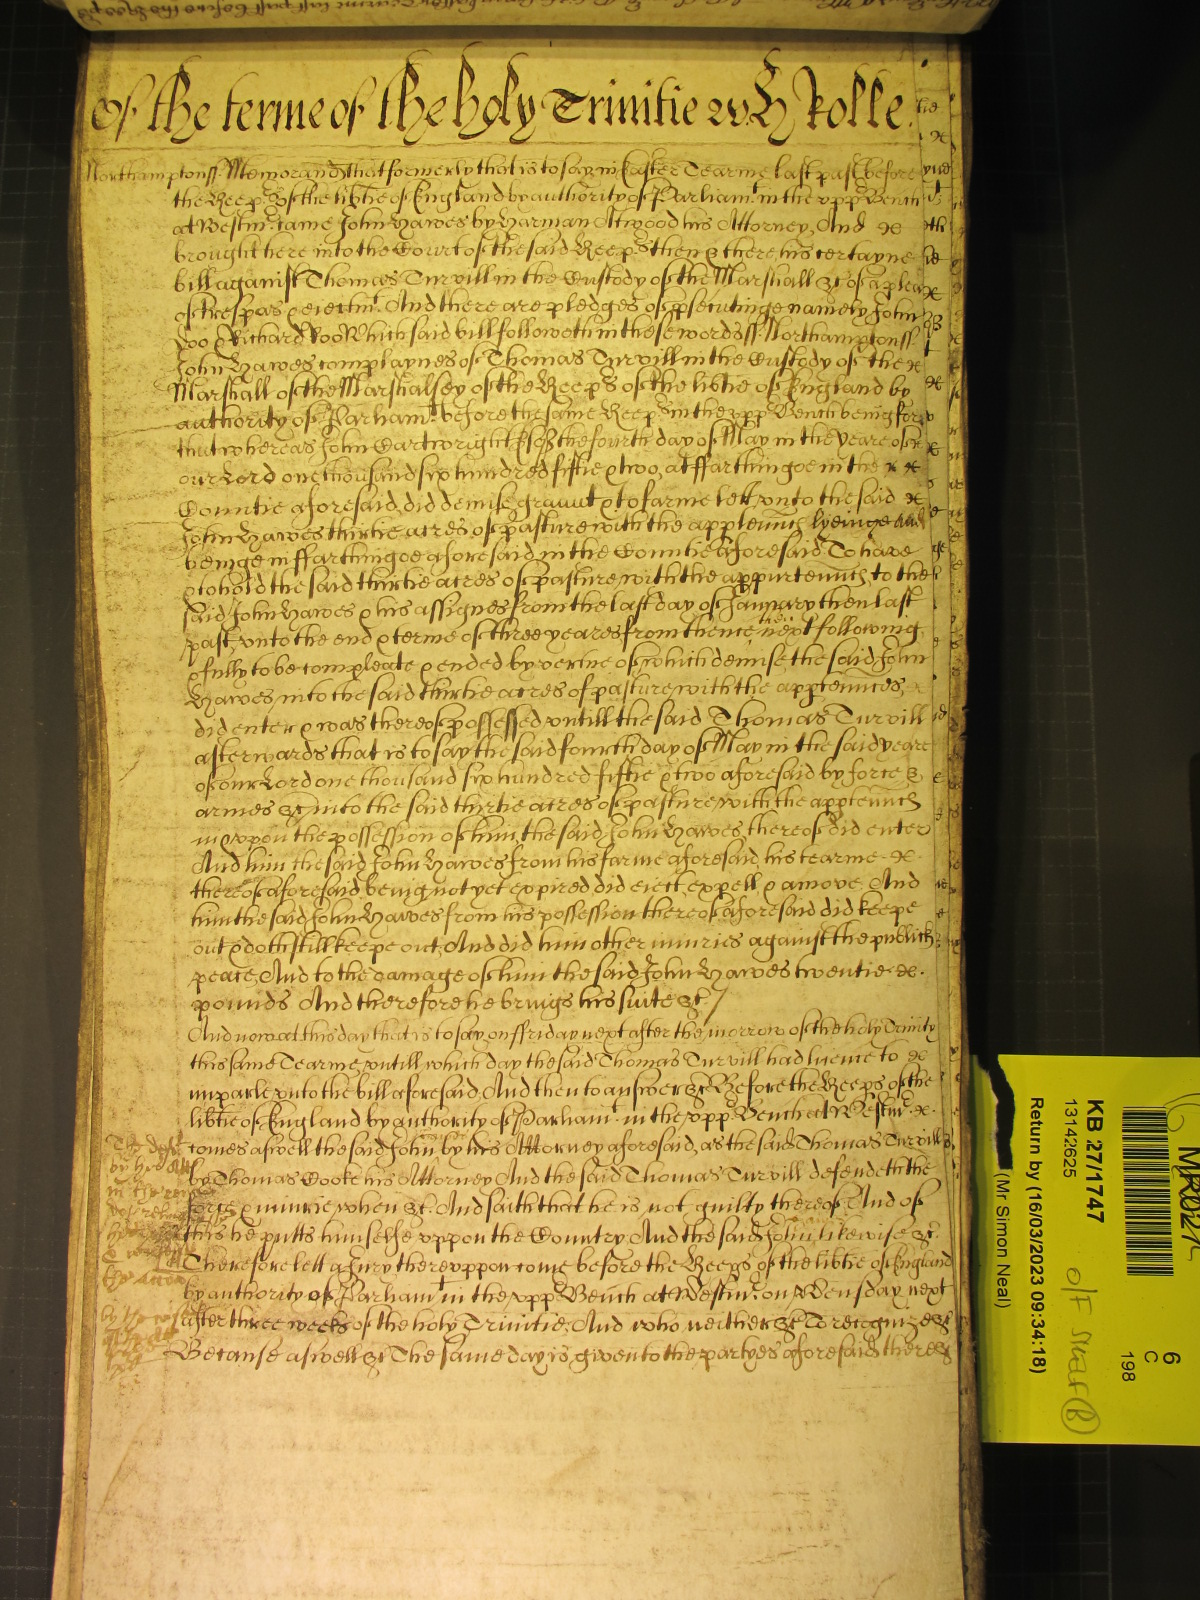 Of the terme of the holy Trinitie Rolle
Northamptonss Memorand that formerly that is to say in Easter Tearme last past before
the Keeps of the libtie of England by authority of Parliamt in the vpp Bench
at Westmr came John Hawes by Harman Atwood his Attorney, And
brought here into the Court of the said Keeps then & there his certayne
bill against Thomas Turvill in the Custody of the Marshall &c of a plea
of trespas & eiectmt And there are pledges of psecutinge namely John
Doo & Richard Roo Which said bill followeth in these words ss Northamptonss
John Hawes complaynes of Thomas Turvill in the Custody of the
Marshall of the Marshalsey of the Keeps of the libtie of England by
authority of Parliamt before the same Keeps in the vpp Bench beinig for
that whereas John Cartwright the fourth day of May in the yeare of
our Lord one thousand six hundred fiftie & two, at ffarthingoe in the
Countie aforesaid did demise graunt & to farme lett vnto the said
John Hawes thirtie acres of pasture with the apptennces lyeinge and
beinge in ffarthingoe aforesaid in the Countie aforesaid To have
& to hold the said thirtie acres of pasture with the appurtennces to the
said John Hawes & his assignes from the last day of January then last
past, vnto the end & terme of three yeares from thence next following
& fully to be compleate & ended by vertue of which demise the said John
Hawes into the said thirtie acres of pasture with the apptennces,
did enter & was thereof possessed vntill the said Thomas Turvill
afterwards that is to say the said fourth day of May in the said yeare
of our Lord one thousand six hundred fiftie & two aforesaid by force &
armes &c into the said thirtie acres of pasture with the apptennces
in & vpon the possession of him the said John Hawes thereof did enter
And him the said John Hawes from his farme aforesaid his tearme
thereof aforesaid being not yet expired did eiect expell & amove And
him the said John Hawes from his possession thereof aforesaid did keepe
out & doth still keepe out, And did him other iniuries against the publick
peace, And to the damage of him the said John Hawes twentie
pounds And therefore he brings his suite &c
And now at this day that is to say on ffriday next after the morrow of the holy Trinity
this same Tearme vntill which day the said Thomas Turvill had licence to
imparle vnto the bill aforesaid, And then to answer &c Before the Keeps of the
libtie of England by authority of Parliamt in the vpp Bench at Westmr
comes aswell the said John by his Attorney aforesaid, as the said Thomas Turvill
by Thomas Cooke his Attorney And the said Thomas Turvill defendeth the
force & iniurie when &c. And saith that he is not guilty thereof And of
this he putts himselfe vppon the Country, And the said John likewise &c.
Therefore lett a Jury therevppon come before the Keeps of the libtie of England
by authority of Parliamt in the vpp Bench at Westmr on Wensday next
after three weeks of the holy Trinitie, And who neither &c To recognize &c
Because aswell &c The same day is given to the partyes aforesaid there &c
KB 27/1747
13142625
Return by (16/03/2023 09:34:18)
(Mr Simon Neal)
6
C
198